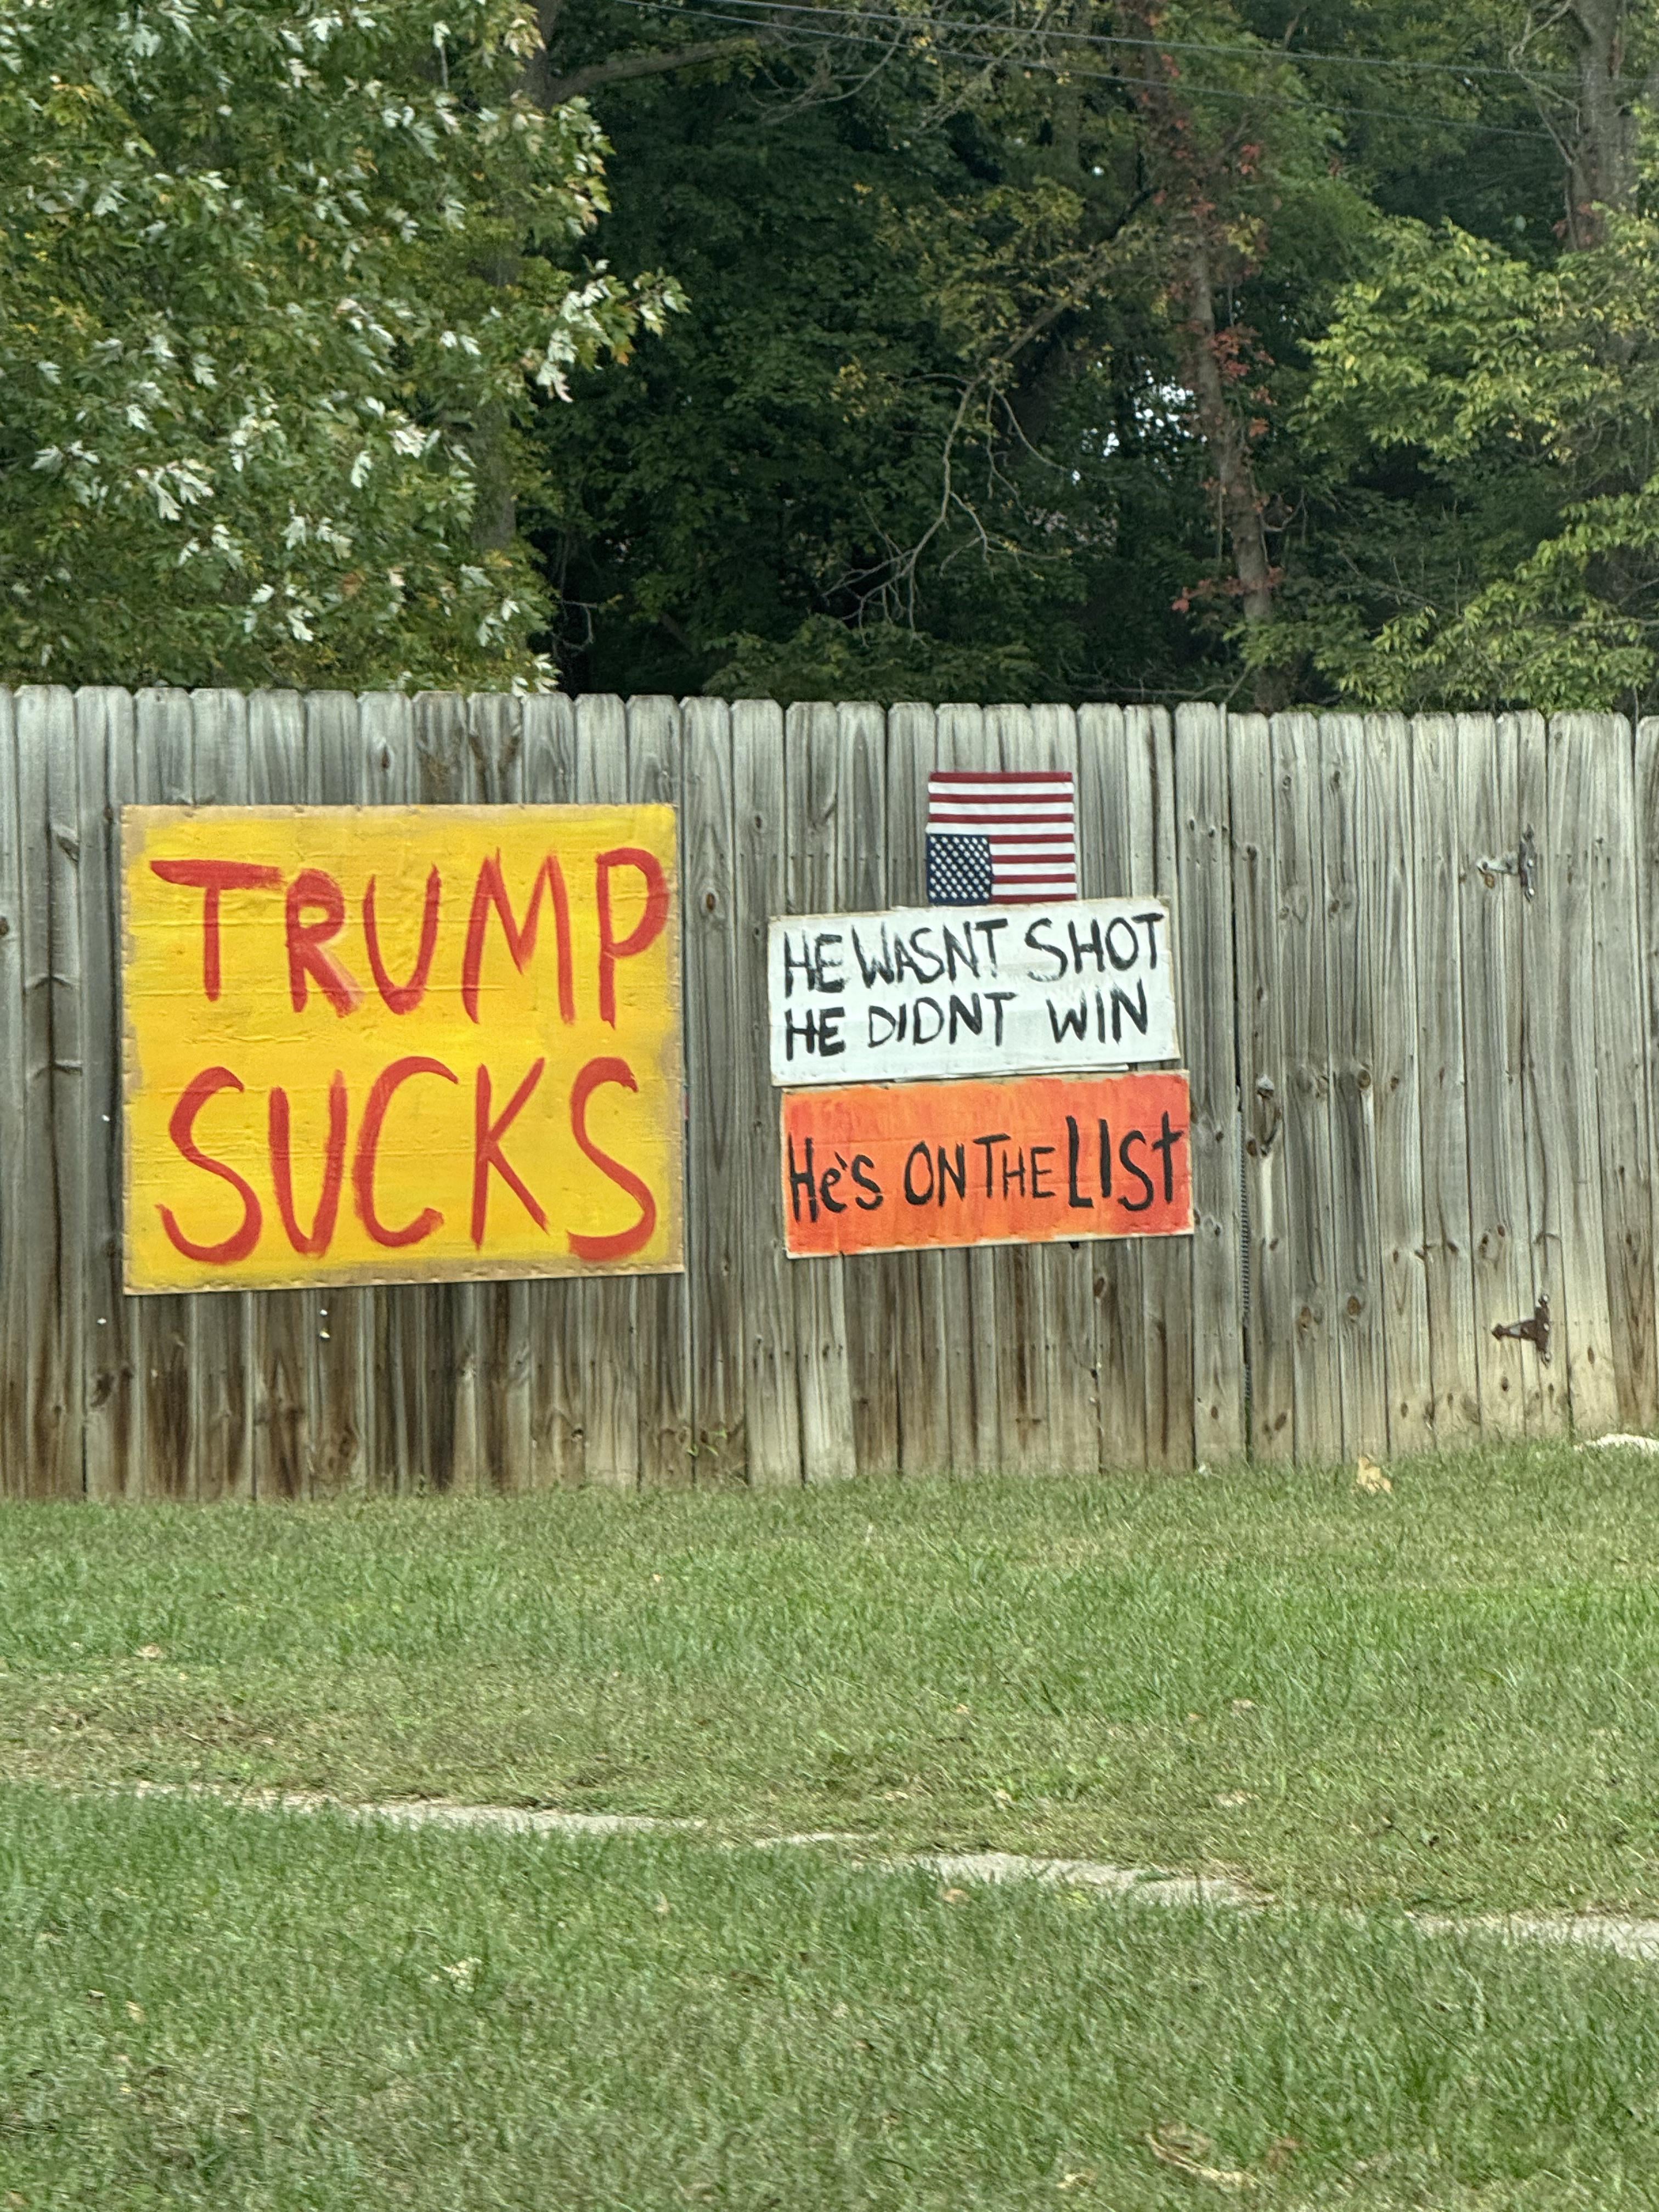 TRUMP
SUCKS
HE WASNT SHOT
HE DIDNT WIN
He's ON THE LISt